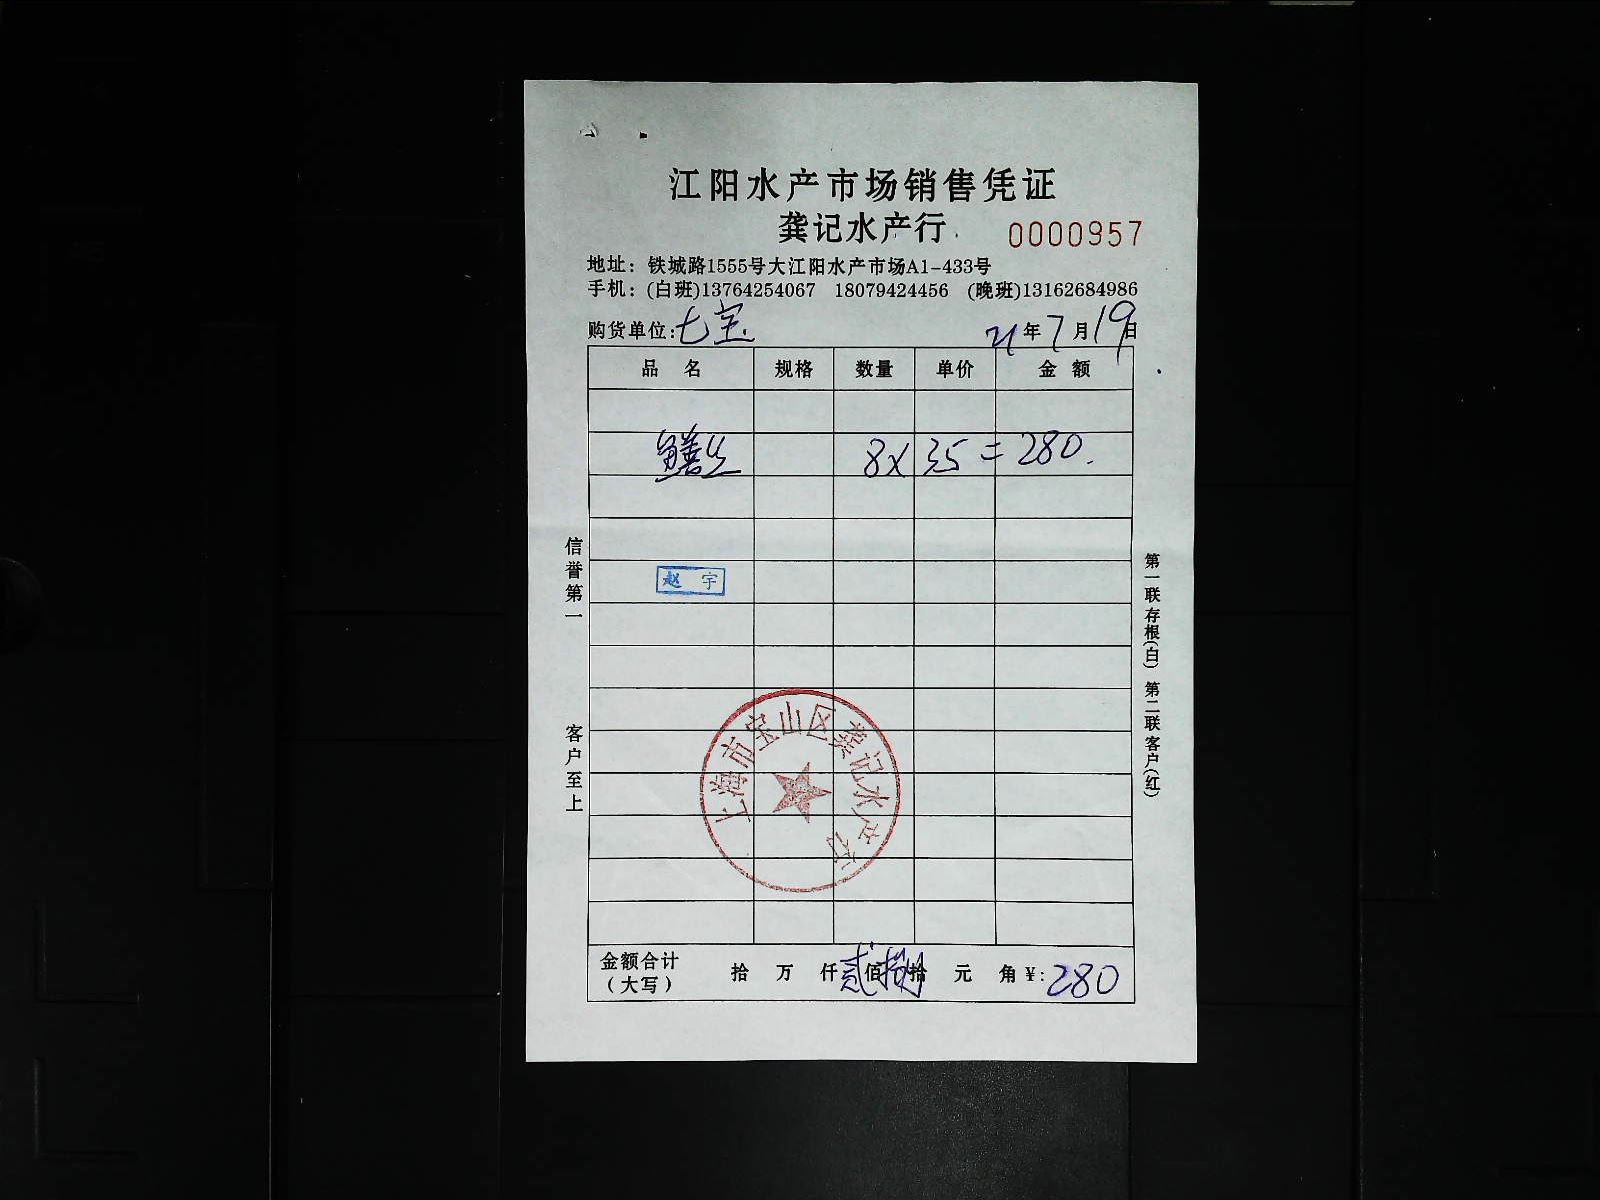 江阳水产市场销售凭证
龚记水产行 0000957
地址：铁城路1555号大江阳水产市场A1-433号
手机：(白班)13764254067 18079424456 (晚班)13162684986
购货单位:七宝 21年7月19日
品名 规格 数量 单价 金额
鳝丝 8x 35 = 280.
赵宇
信誉第一 客户至上
第一联存根(白) 第二联客户(红)
上海市宝山区龚记水产行
金额合计（大写） 拾 万 仟 贰佰 捌拾 元 角 ¥:280